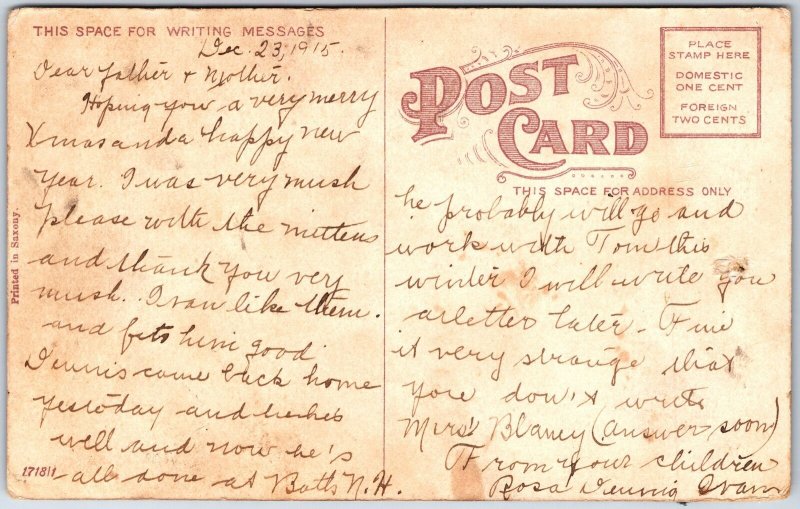 THIS SPACE FOR WRITING MESSAGES
Dec. 23, 1915.
Dear father & Mother.
Hoping you a very merry
Xmas and a happy new
year. I was very mush
please with the mittens
and thank you very
mush. Ivan like them.
and fits him good
Dennis came back home
yestoday and he feels
well and now he's
all done at Baths N.H.
Printed in Saxony.
1718/1
POST CARD
PLACE
STAMP HERE
DOMESTIC
ONE CENT
FOREIGN
TWO CENTS
THIS SPACE FOR ADDRESS ONLY
he probably will go and
work with Tom this
winter I will write you
a letter later. Fine
it very strange that
you don't write
Mirs! Blaney (answer soon)
From your children
Rosa Dennis Ivan